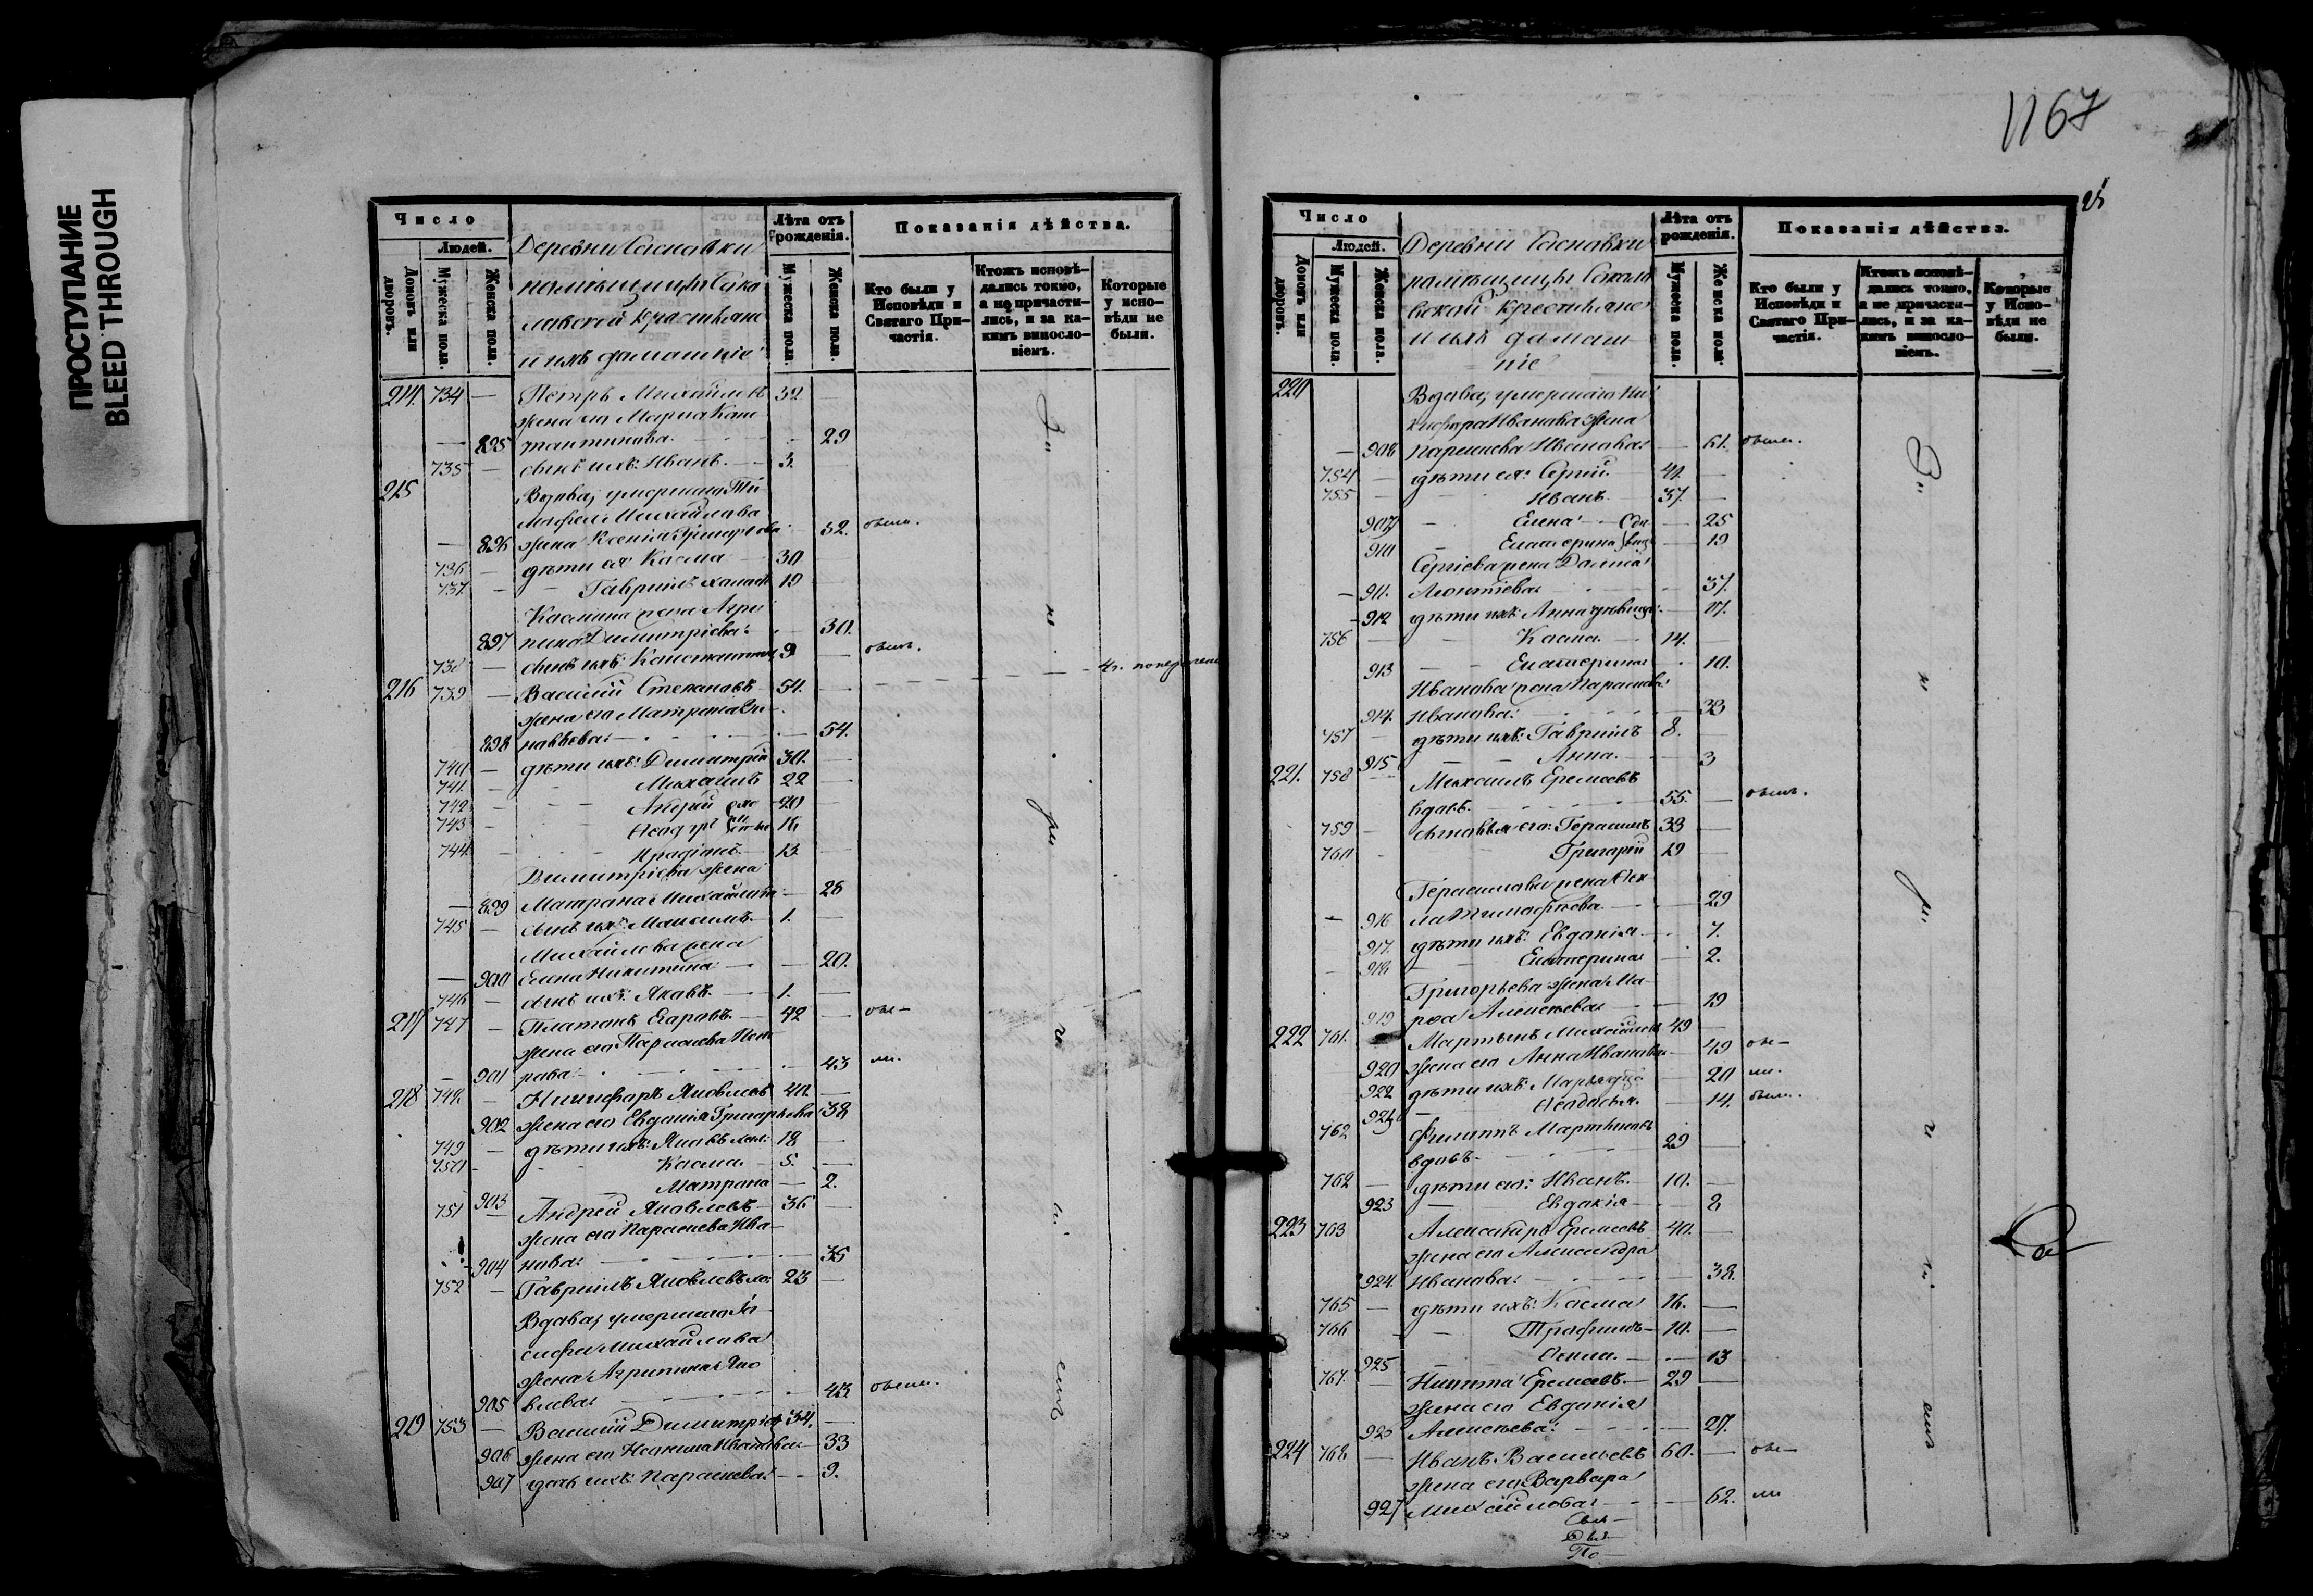 ПРОСТУПАНИЕ
BLEED THROUGH
Число
Людей.
Домовъ или дворовъ.
Мужеска пола.
Женска пола.
Деревни Сосновки
помѣщицы Соко
ловской крестьяне
и ихъ домашніе
Лѣта отъ рожденія.
Мужеска пола.
Женска пола.
Показанія дѣйства.
Кто были у Исповѣди и Святаго Причастія.
Ктожъ исповѣдались токмо, а не причастились, и за какимъ винословіемъ.
Которые у исповѣди не были.
214. 734 — Петръ Михайловъ 32 —
жена его Марія Кон
— 895 стантинова. — 29
735 — сынъ ихъ: Иванъ. — 3. —
215 Вдова, умершаго Ти
мофея Михайлова
— 896 жена Ксенія 52. были.
736 — дѣти ея: Косма 30
737. — Гавріилъ холост 19
Космина жена Агри
897 пина Димитріева. — 30.
738 — сынъ ихъ: Константинъ 9 — были.
216 739 — Василій Степановъ 54. —
жена его Матрона
898 — 54.
740 — дѣти ихъ: Димитрій 30. —
741. — Михаилъ 22 —
742 — Андрей 20 —
743 — 16
744 — Иродіонъ 13.
Димитріева жена
— 899 Матрона Михайлова — 26
745 — сынъ ихъ: Максимъ 1. —
Михайлова жена
— 900 Елена Никитина — 20.
746 — сынъ ихъ: Яковъ. — 1. —
217 747 — Платонъ 42 — бы—
жена его Параскева Пет
— 901 рова — 43 ли.
218 748 — Никифоръ Яковлевъ 40. —
902 жена его Евдокія Григорьева 38
749 — дѣти ихъ: Яковъ хол: 18 —
750 — Косма. — 5. —
903 Матрона — 2.
751 Андрей Яковлевъ — 36 —
жена его Параскева Ива
— 904 нова — 35
752 — Гавріилъ Яковлевъ хо: 23 —
Вдова, умершаго Іо
сифа Михайлова
жена Агрипина Яко
905 влева — 43 были.
219 753 — Василій Димитріевъ 34. —
906 жена его Ивановна 33
907 дочь ихъ: Параскева. — 9.
4. по нерадению
1167
25
Число
Людей.
Домовъ или дворовъ.
Мужеска пола.
Женска пола.
Деревни Сосновки
помѣщицы Соколо
вской крестьяне
и ихъ домаш
ніе
Лѣта отъ рожденія.
Мужеска пола.
Женска пола.
Показанія дѣйства.
Кто были у Исповѣди и Святаго Причастія.
Ктожъ исповѣдались токмо, а не причастились, и за какимъ винословіемъ.
Которые у Исповѣди не были.
220 Вдова, умершаго Ни
кифора Иванова жена
— 908 Параскева Иванова — 61. были.
754 — дѣти ея: Сергій. 41. —
755 — Иванъ 37. —
909 — Елена — 25
910 — Екатерина — 19
Сергіева жена
— 911. Леонтіева — 37.
— 912 дѣти ихъ: Анна дѣвица: — 17.
756 — Косма. — 14. —
913 — Екатерина — 10.
Иванова жена Параскева
914. Иванова: — 33
757 — дѣти ихъ: Гавріилъ 8. —
915 — Анна. — 3
221. 758 — Михаилъ Еремеевъ
вдовъ. — 55. — были.
759 — сыновья его: Герасимъ 33 —
760 — Григорій 19 —
Герасимова жена
— 916 Тимофеева — 29
917. дѣти ихъ: Евдокія — 7.
— 918 Екатерина — 2.
Григорьева жена Ма
919 рѳа Алексеева — 19
222 761. Мартынъ Михайловъ 49 —
920 жена его Анна Иванова — 49 бы—
922 дѣти ихъ: 20 ли.
14. были.
762 Филиппъ Мартыновъ
вдовъ — 29 —
762 — дѣти его: Иванъ. — 10. —
923 — Евдокія — 8
223 763 Александръ Еремеевъ 40. —
жена его Александра
924. Иванова: — 38.
765 — дѣти ихъ: Косма 16. —
766 — Трофимъ — 10. —
925 — 13
767. — Никита Еремеевъ. — 29 —
жена его Евдокія
926 Алексеева: — 27.
224 768 — Иванъ Васильевъ 60. — бы—
жена его Варвара
927 Михайлова — 62. ли